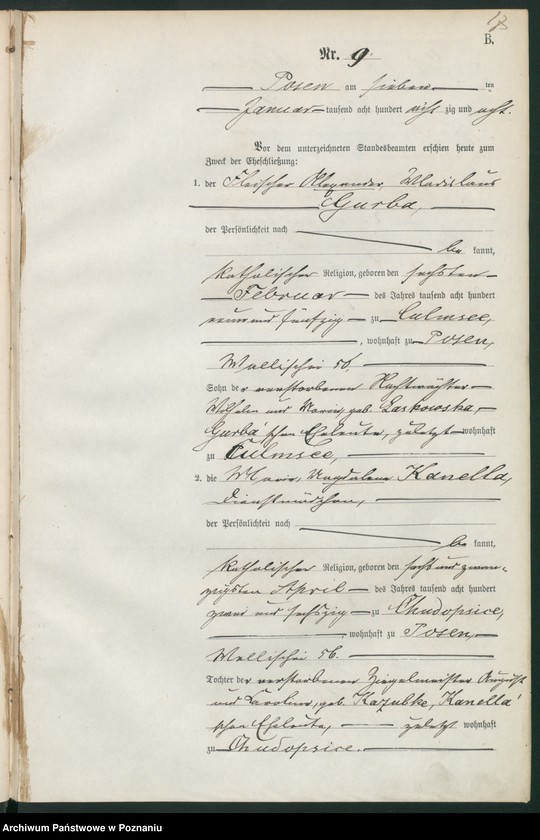 18
B.
Nr. 9.
Posen am sieben ten
Januar tausend acht hundert acht zig und acht.
Vor dem unterzeichneten Standesbeamten erschien heute zum
Zweck der Eheschließung:
1. der Fleischer Alexander, Wladislaus
Gurba,
der Persönlichkeit nach
be kannt,
katholischer Religion, geboren den sechsten
Februar des Jahres tausend acht hundert
neun und fünfzig zu Culmsee,
, wohnhaft zu Posen,
Wallischei 56.
Sohn der verstorbenen Nachtwächter
Wilhelm und Maria, geb. Laskowska,
Gurba'schen Eheleute, zuletzt wohnhaft
zu Culmsee,
2. die Maria, Magdalena Kanella,
Dienstmädchen,
der Persönlichkeit nach
be kannt,
katholischer Religion, geboren den sechs und zwan-
zigsten April des Jahres tausend acht hundert
zwei und sechszig zu Chudopsice,
, wohnhaft zu Posen,
Wallischei 56.
Tochter der verstorbenen Ziegelmeister August
und Karoline, geb. Kazubke, Kanella'
schen Eheleute, zuletzt wohnhaft
zu Chudopsice.
Archiwum Państwowe w Poznaniu